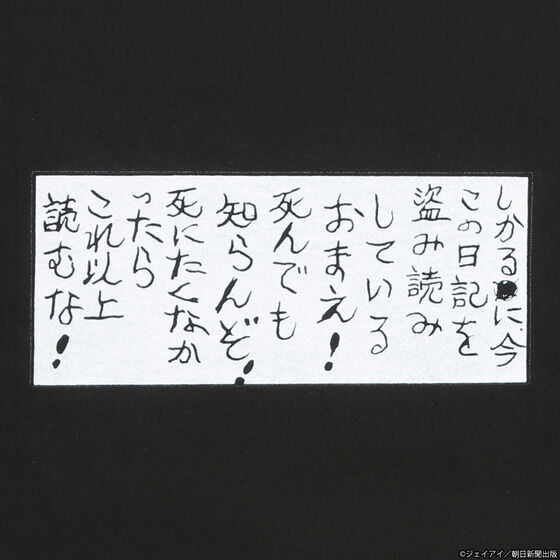 しかる●に、今
この日記を
盗み読み
している
おまえ!
死んでも
知らんぞ!
死にたくなか
ったら
これ以上
読むな!
©ジェイアイ/朝日新聞出版